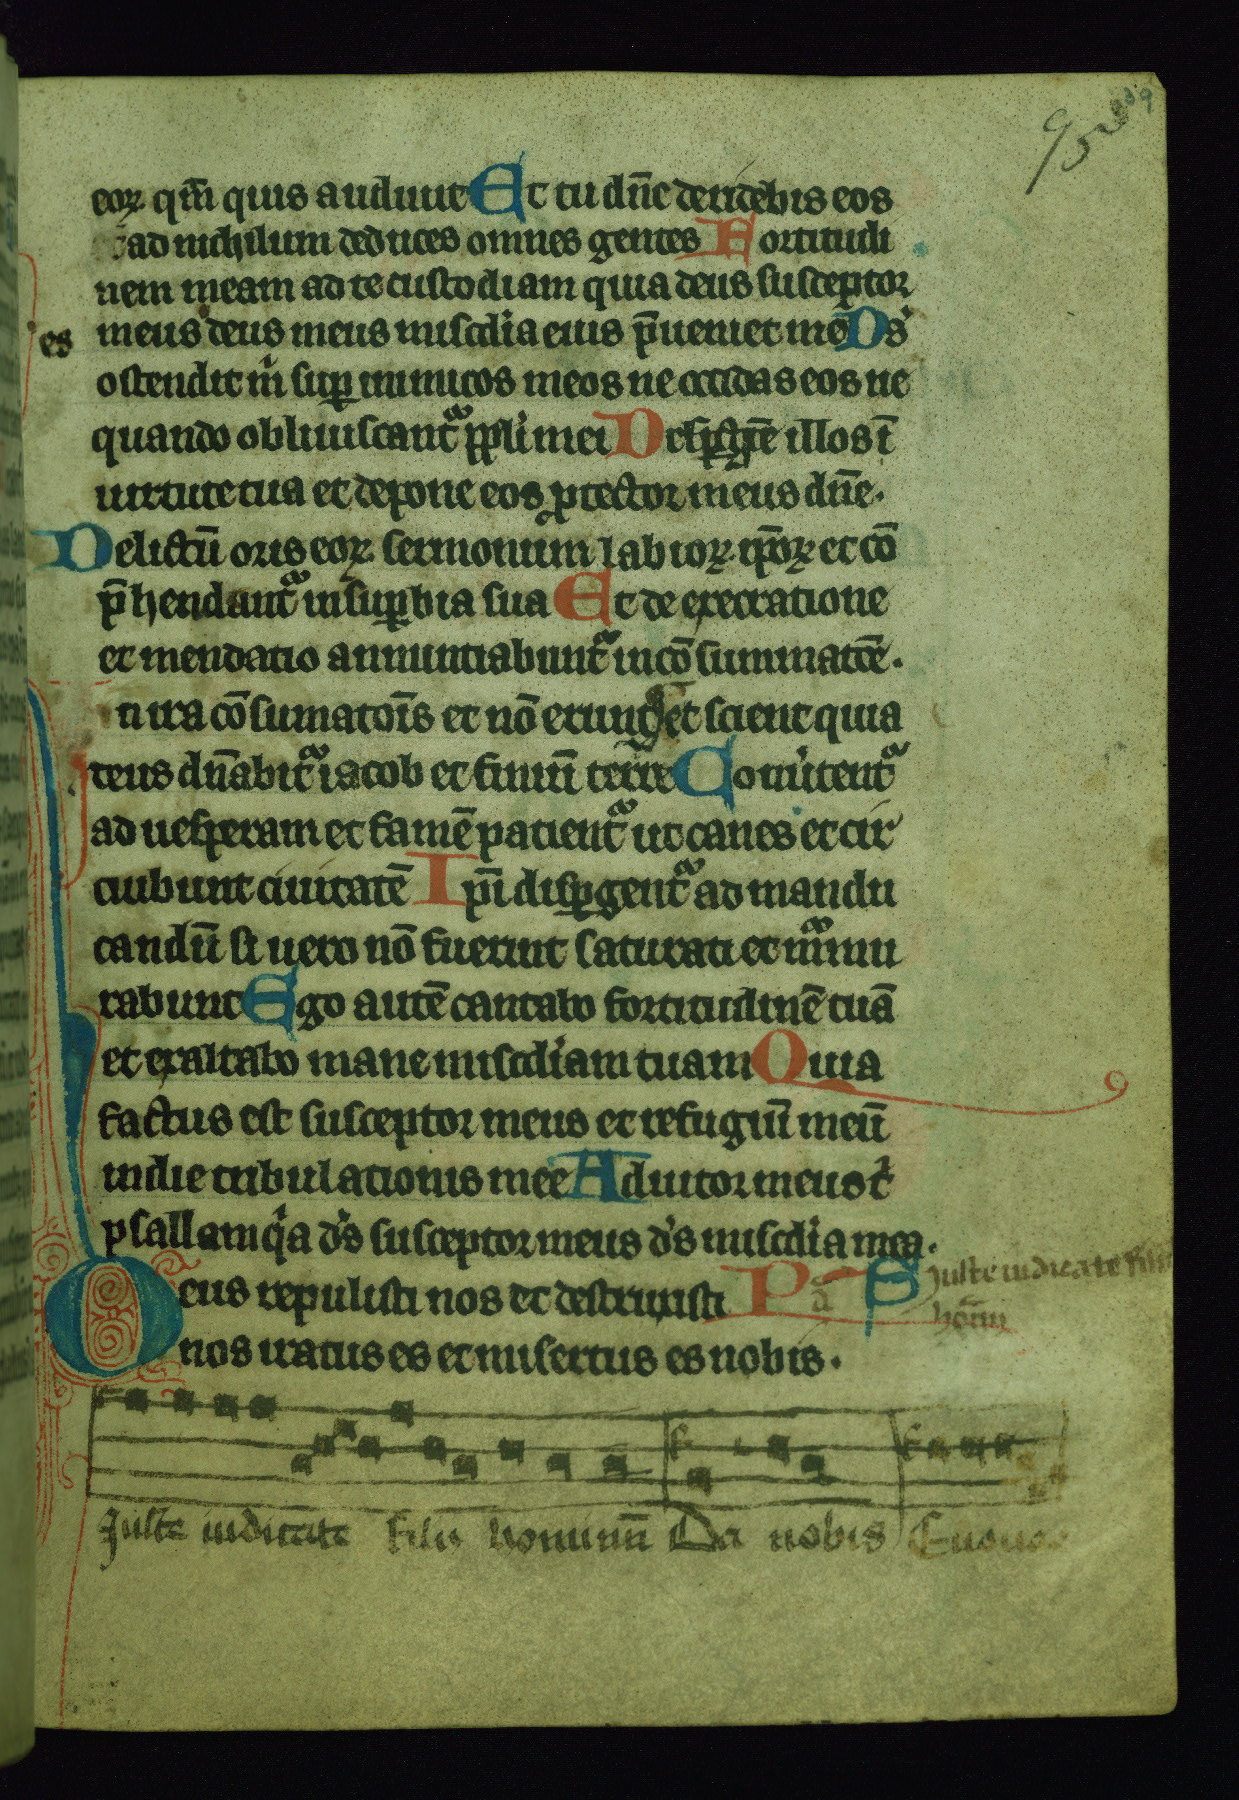 95 39
eoꝝ qm̄ quis audiuit Et tu dn̄e deridebis eos
ad nichilum deduces omnes gentes Fortitudi
nem meam ad te custodiam quia deus susceptor
es meus deus meus misc̄dia eius p̄ueniet me Ds̄
ostendit m̄ sup̄ inimicos meos ne occidas eos ne
quando obliuiscant᷑ ppli mei Dispge illos ī
uirtute tua et depone eos ꝓtector meus dn̄e.
Delictū oris eoꝝ sermonum labioꝝ ip̄oꝝ et cō
p̄hendant᷑ in sup̄bia sua Et de execratione
et mendatio annuntiabunt᷑ in cō summatōe.
n ira cōsumatōis et nō erunt et scient quia
deus dn̄abit᷑ iacob et finiū terre Conu̾tent᷑
ad uesperam et famē patient᷑ ut canes et cir
cuibunt ciuitatē Ip̄i disp̄gent᷑ ad mandu
candū si uero nō fuerint saturati et mᷓmu
rabunt Ego autē cantabo fortitudinē tuā
et exaltabo mane misc̄diam tuam Quia
factus est susceptor meus et refugiū meū
in die tribulationis mee Adiutor meus t̾
psallam qͥa ds̄ susceptor meus ds̄ misc̄dia mea.
Deus repulisti nos et destruxisti Pa S Juste iudicate filii
nos iratus es et misertus es nobis. hoīm
Juste iudicate filii hominū Da nobis Euouae